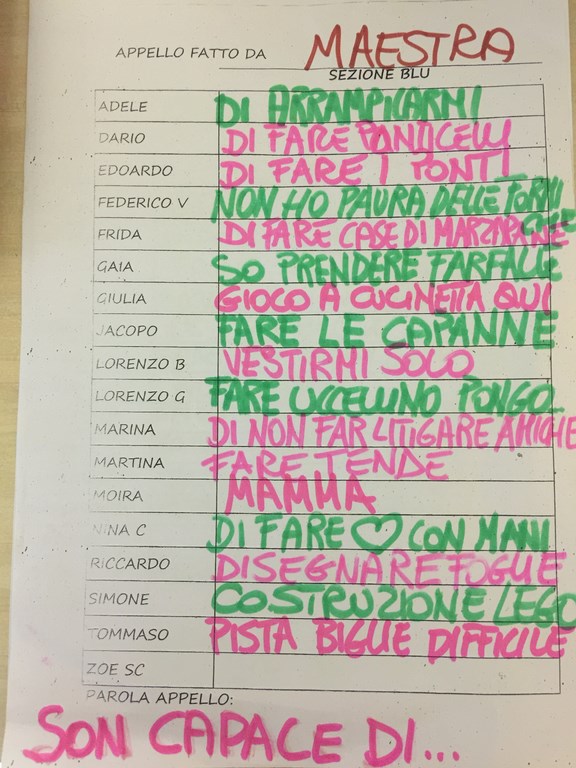 APPELLO FATTO DA MAESTRA
SEZIONE BLU
ADELE DI ARRAMPICARMI
DARIO DI FARE PONTICELLI
EDOARDO DI FARE I PONTI
FEDERICO V NON HO PAURA DELLE FORMICHE
FRIDA DI FARE CASE DI MARZAPANE
GAIA SO PRENDERE FARFALLE
GIULIA GIOCO A CUCINETTA QUI
JACOPO FARE LE CAPANNE
LORENZO B VESTIRMI SOLO
LORENZO G FARE UCCELLINO PONGO
MARINA DI NON FAR LITIGARE AMICHE
MARTINA FARE TENDE
MOIRA MAMMA
NINA C DI FARE ♡ CON MANI
RICCARDO DISEGNARE FOGLIE
SIMONE COSTRUZIONE LEGO
TOMMASO PISTA BIGLIE DIFFICILE
ZOE SC
PAROLA APPELLO:
SON CAPACE DI...